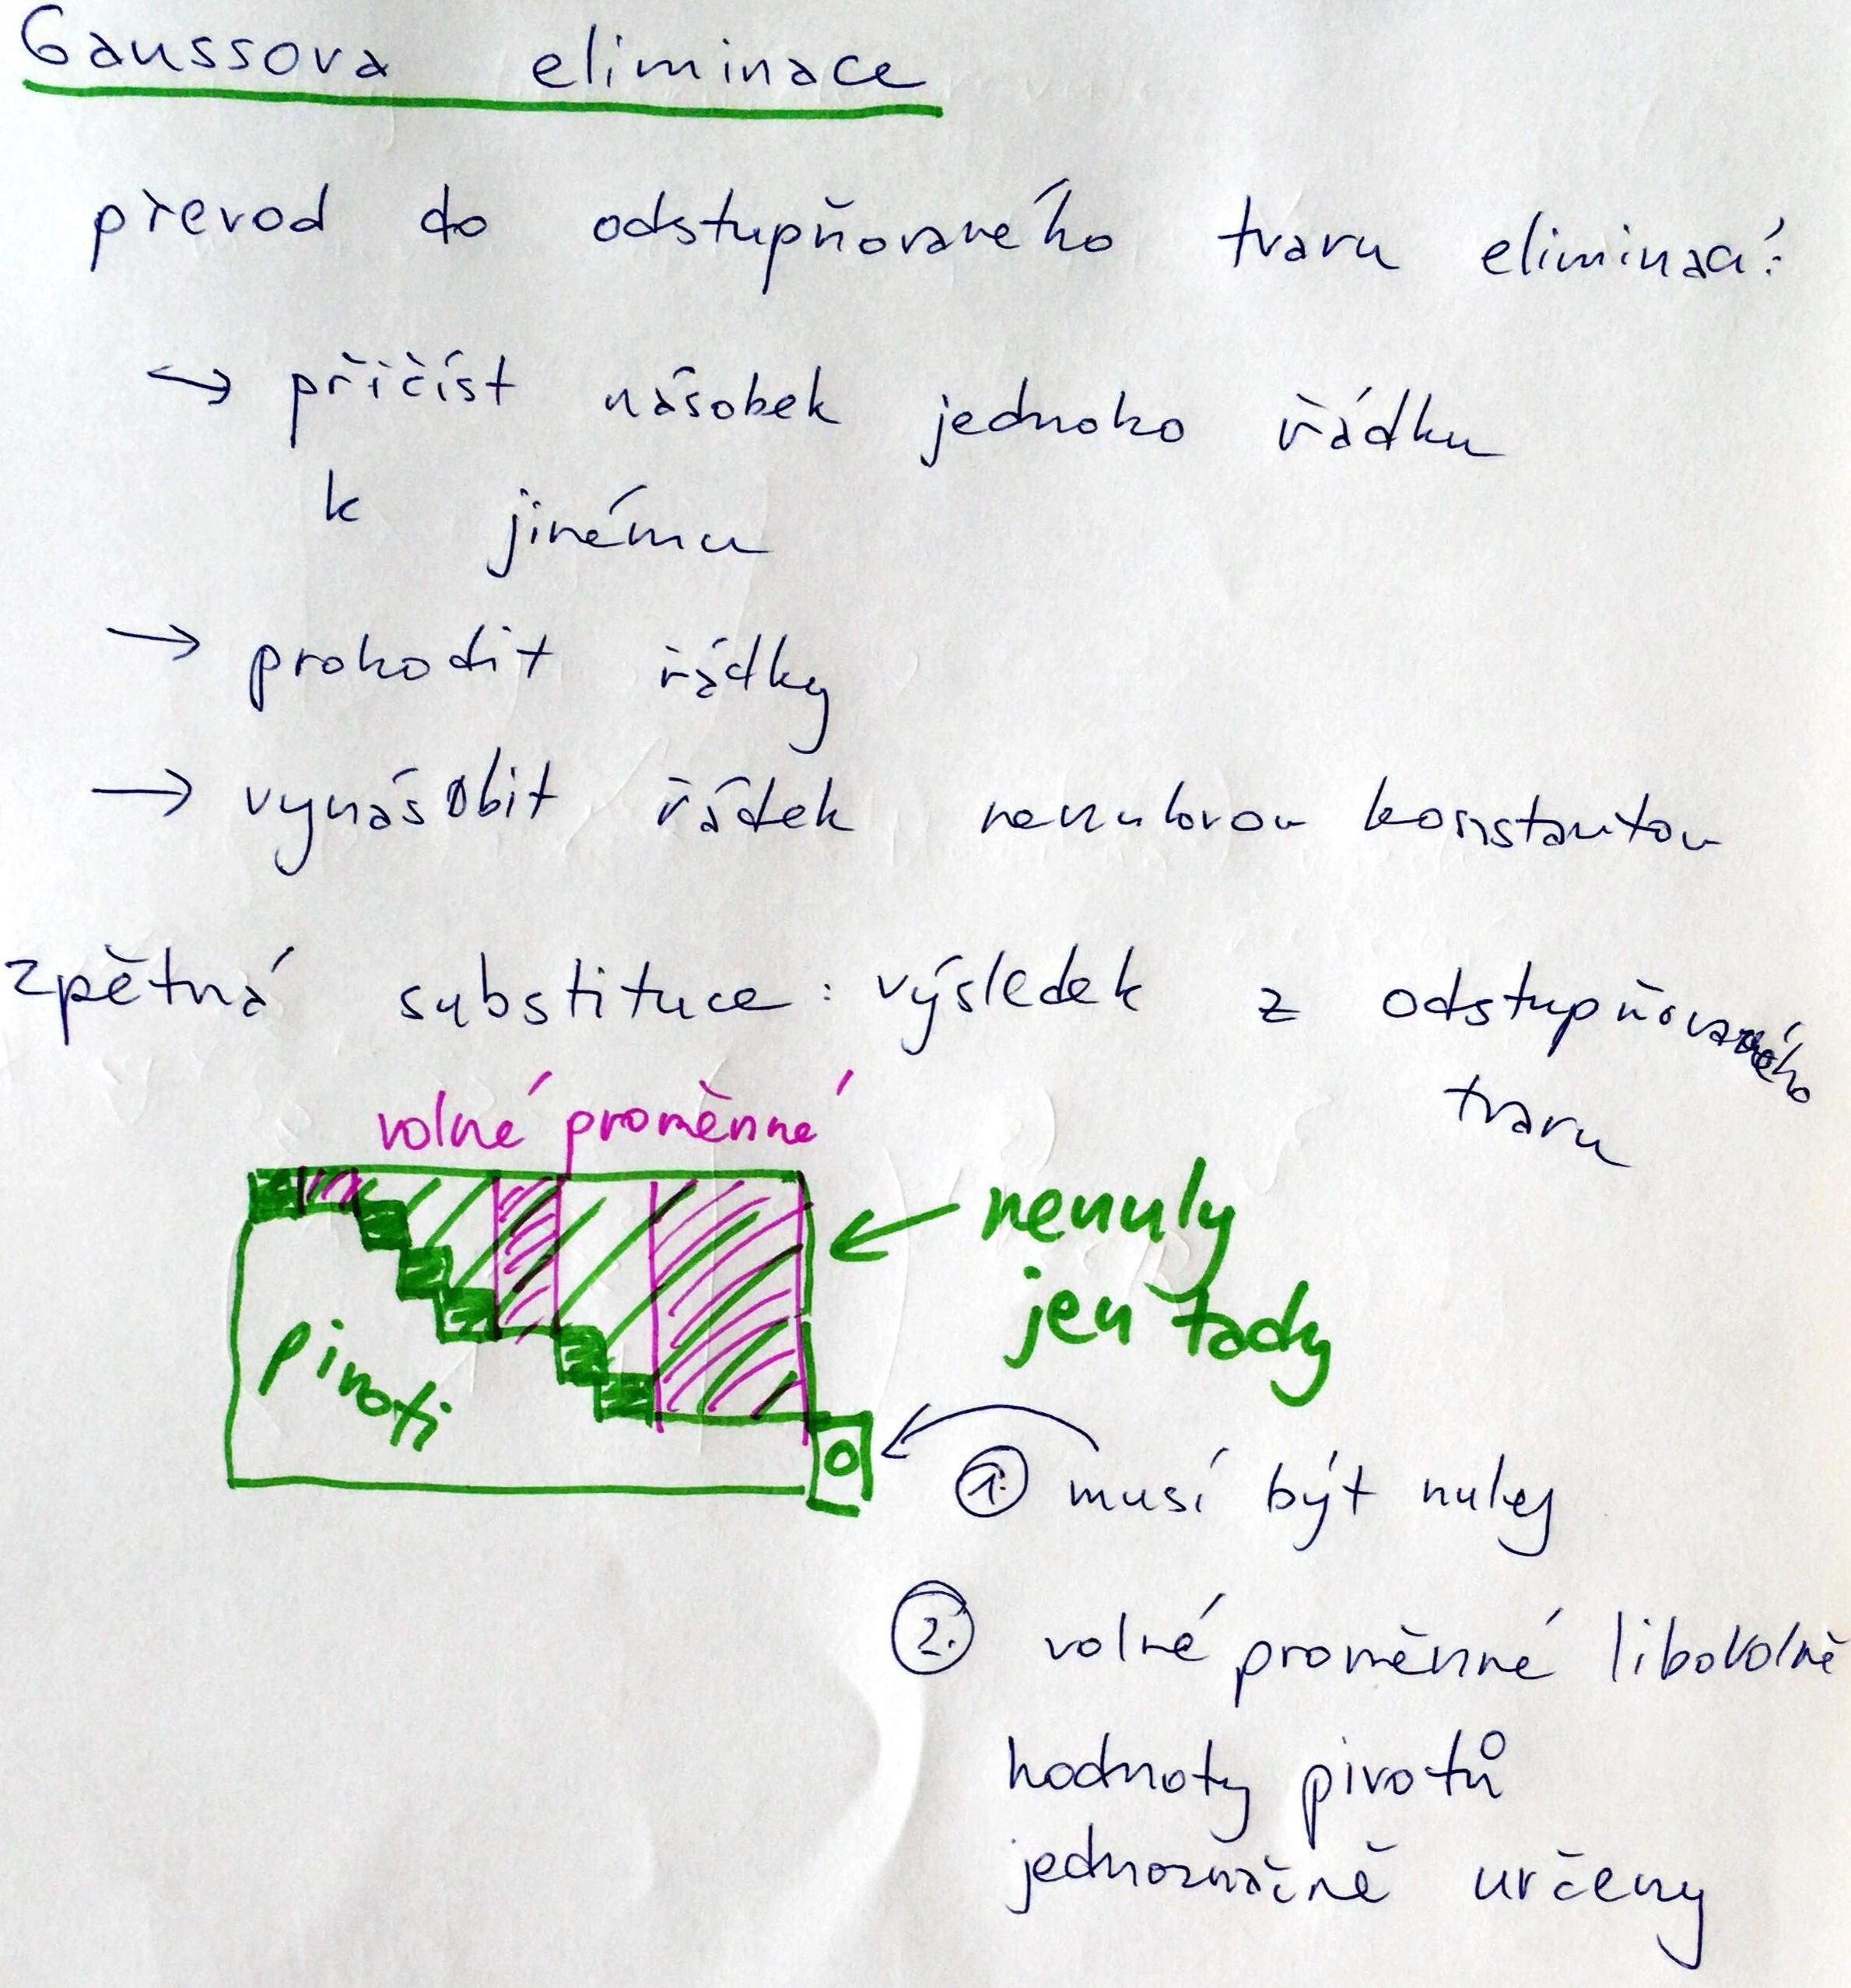 Gaussova eliminace
převod do odstupňovaného tvaru eliminací:
→ přičíst násobek jednoho řádku
k jinému
→ prohodit řádky
→ vynásobit řádek nenulovou konstantou
zpětná substituce: výsledek z odstupňovaného
tvaru
volné proměnné
nenuly
jen tady
pivoti
0
1. musí být nuly
2. volné proměnné libovolně
hodnoty pivotů
jednoznačně určeny